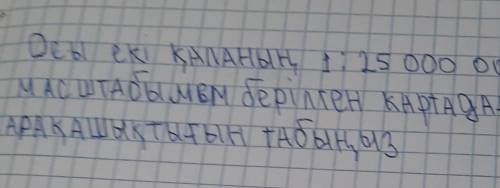 Осы екі қаланың 1:25 000 00
масштабымем берілген картада-
арақашықтығын табыңыз